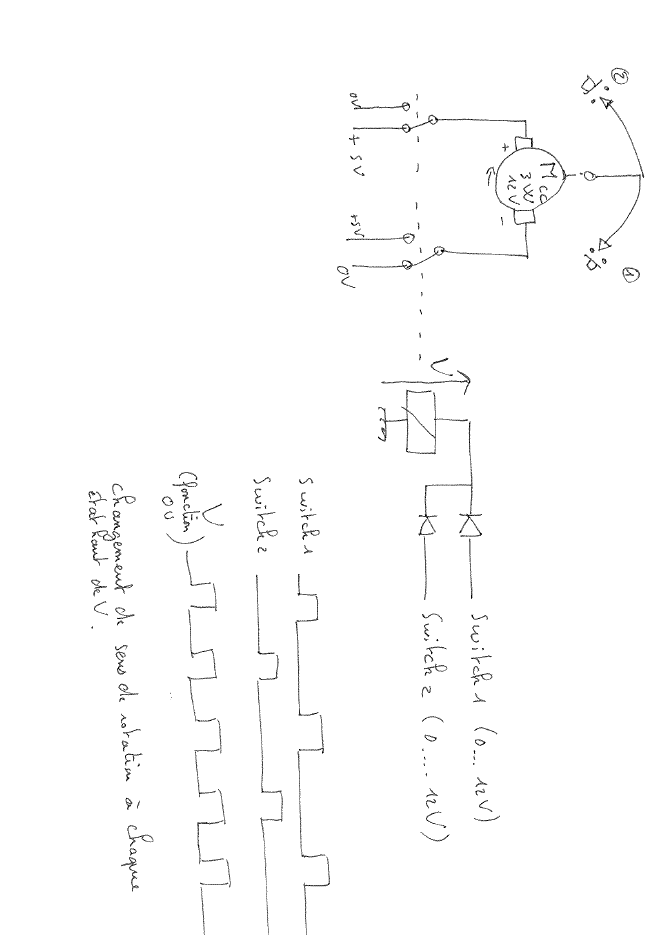 ②
①
0V
+ 5V
+5V
0V
+
-
Mcc
3W
12V
V
Switch 1 (0... 12V)
Switch 2 (0.... 12V)
Switch 1
Switch 2
V
(fonction
OU)
changement de sens de rotation à chaque
état haut de V.